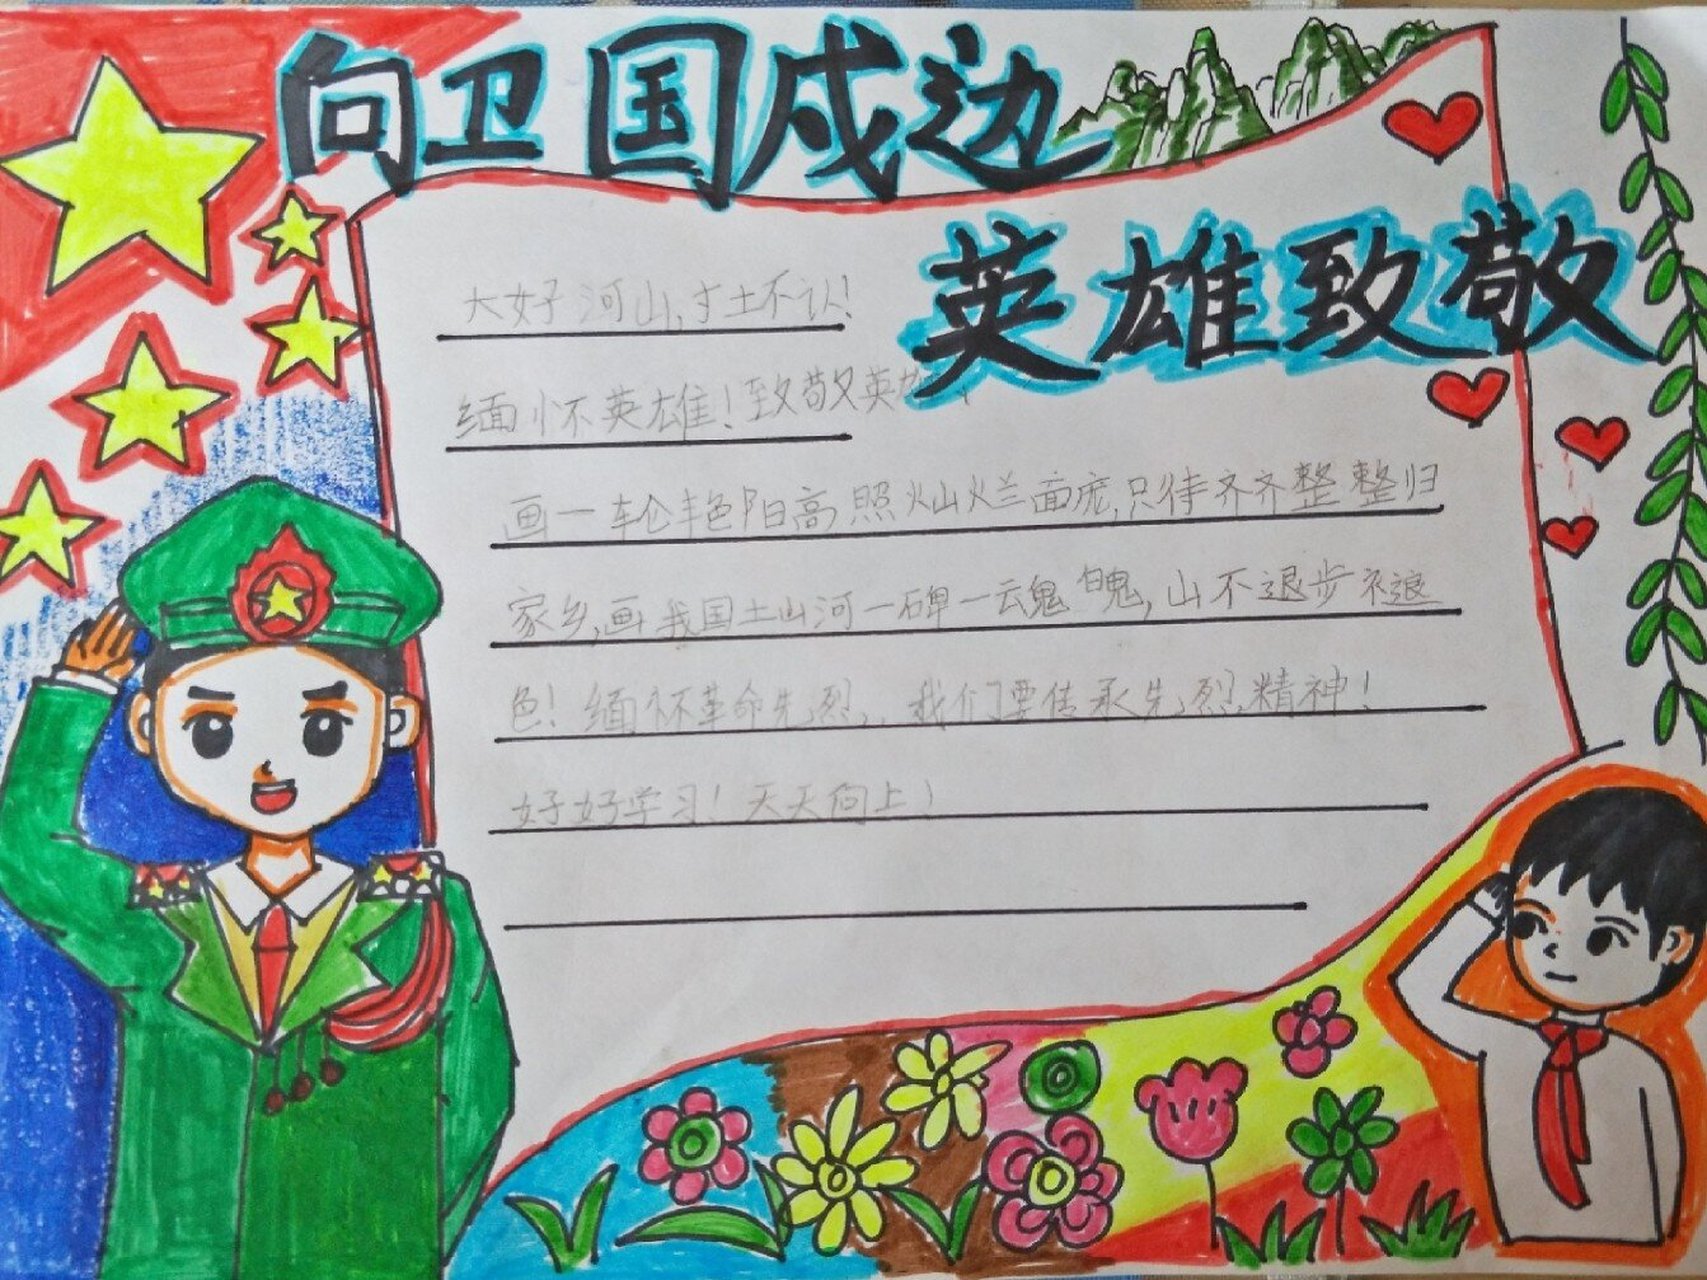 向卫国戍边
英雄致敬
大好河山,寸土不认!
缅怀英雄!致敬英雄
画一轮艳阳高照灿烂面庞,只待齐齐整整归
家乡,画我国土山河一碑一魂魄,山不退步不退
色!缅怀革命先烈,我们要传承先烈精神!
好好学习!天天向上!